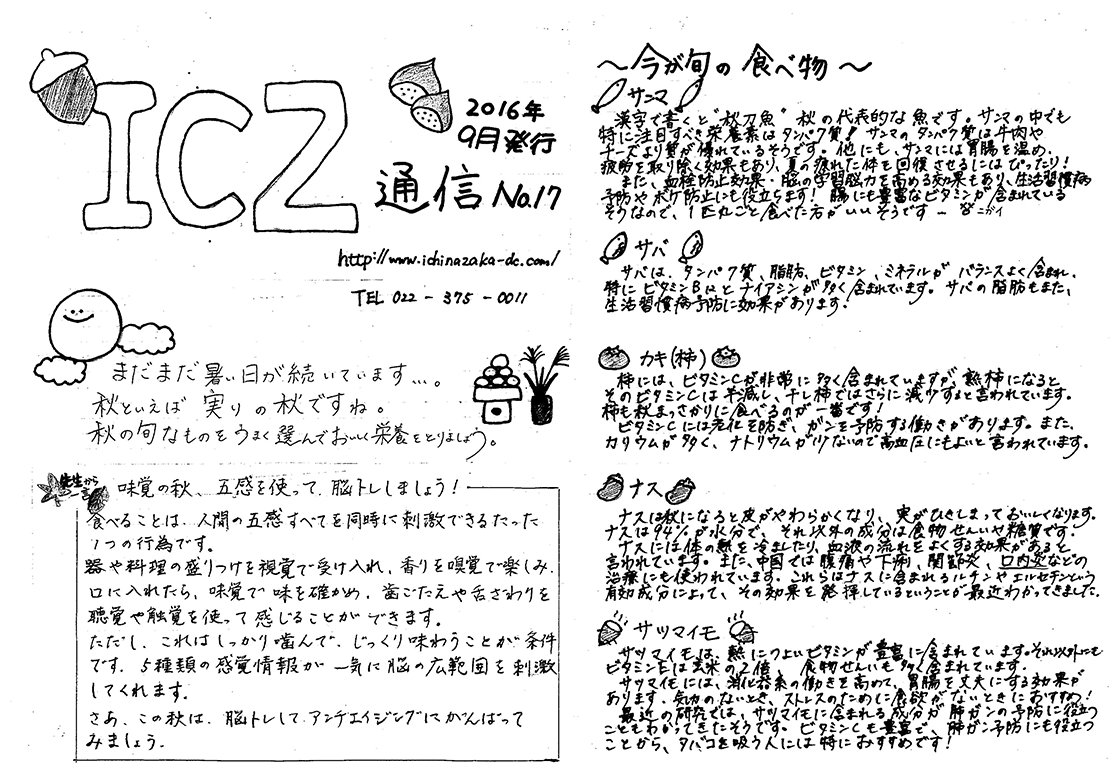 ICZ
2016年
9月発行
通信 No.17
http://www.ichinazaka-dc.com/
TEL 022-375-0011
まだまだ暑い日が続いています…。
秋といえば 実りの秋ですね。
秋の旬なものをうまく選んでおいしく栄養をとりましょう。
先生から
一言
味覚の秋、五感を使って、脳トレしましょう！
食べることは、人間の五感すべてを同時に刺激できるたった
1つの行為です。
器や料理の盛りつけを視覚で受け入れ、香りを嗅覚で楽しみ、
口に入れたら、味覚で味を確かめ、歯ごたえや舌ざわりを
聴覚や触覚を使って感じることができます。
ただし、これはしっかり噛んで、じっくり味わうことが条件
です。5種類の感覚情報が一気に脳の広範囲を刺激
してくれます。
さあ、この秋は、脳トレしてアンチエイジングにがんばって
みましょう。
～今が旬の食べ物～
サンマ
漢字で書くと"秋刀魚" 秋の代表的な魚です。サンマの中でも
特に注目すべき栄養素はタンパク質！サンマのタンパク質は牛肉や
チーズより質が優れているそうです。他にも、サンマには胃腸を温め、
疲労を取り除く効果もあり、夏の疲れた体を回復させるにはぴったり！
また、血栓防止効果・脳の学習脳力を高める効果もあり、生活習慣病
予防やボケ防止にも役立ちます！腸にも豊富なビタミンが含まれている
そうなので、1匹丸ごと食べた方がいいそうです…
サバ
サバは、タンパク質、脂肪、ビタミン、ミネラルがバランスよく含まれ、
特にビタミンB₁₂とナイアシンが多く含まれています。サバの脂肪もまた、
生活習慣病予防に効果があります。
カキ(柿)
柿には、ビタミンCが非常に多く含まれていますが、熟柿になると
そのビタミンCは半減し、干し柿ではさらに減少すると言われています。
柿も秋まっさかりに食べるのが一番です！
ビタミンCには老化を防ぎ、ガンを予防する働きがあります。また、
カリウムが多く、ナトリウムが少ないので高血圧にもよいと言われています。
ナス
ナスは秋になると皮がやわらかくなり、実がひきしまっておいしくなります。
ナスは94%が水分で、それ以外の成分は食物せんいや糖質です。
ナスには体の熱を冷ましたり、血液の流れをよくする効果があると
言われています。また、中国では腹痛や下痢、関節炎、口内炎などの
治療にも使われています。これらはナスに含まれるルチンやエルセチンという
有効成分によって、その効果を発揮しているということが最近わかってきました。
サツマイモ
サツマイモは、熱につよいビタミンが豊富に含まれています。それ以外にも
ビタミンEは玄米の2倍、食物せんいも多く含まれています。
サツマイモには、消化器系の働きを高めて、胃腸を丈夫にする効果が
あります。気力のないとき、ストレスのために食欲がないときにおすすめ！
最近の研究では、サツマイモに含まれる成分が肺ガンの予防に役立つ
こともわかってきたそうです。ビタミンCも豊富で、肺ガン予防にも役立つ
ことから、タバコを吸う人には特におすすめです！